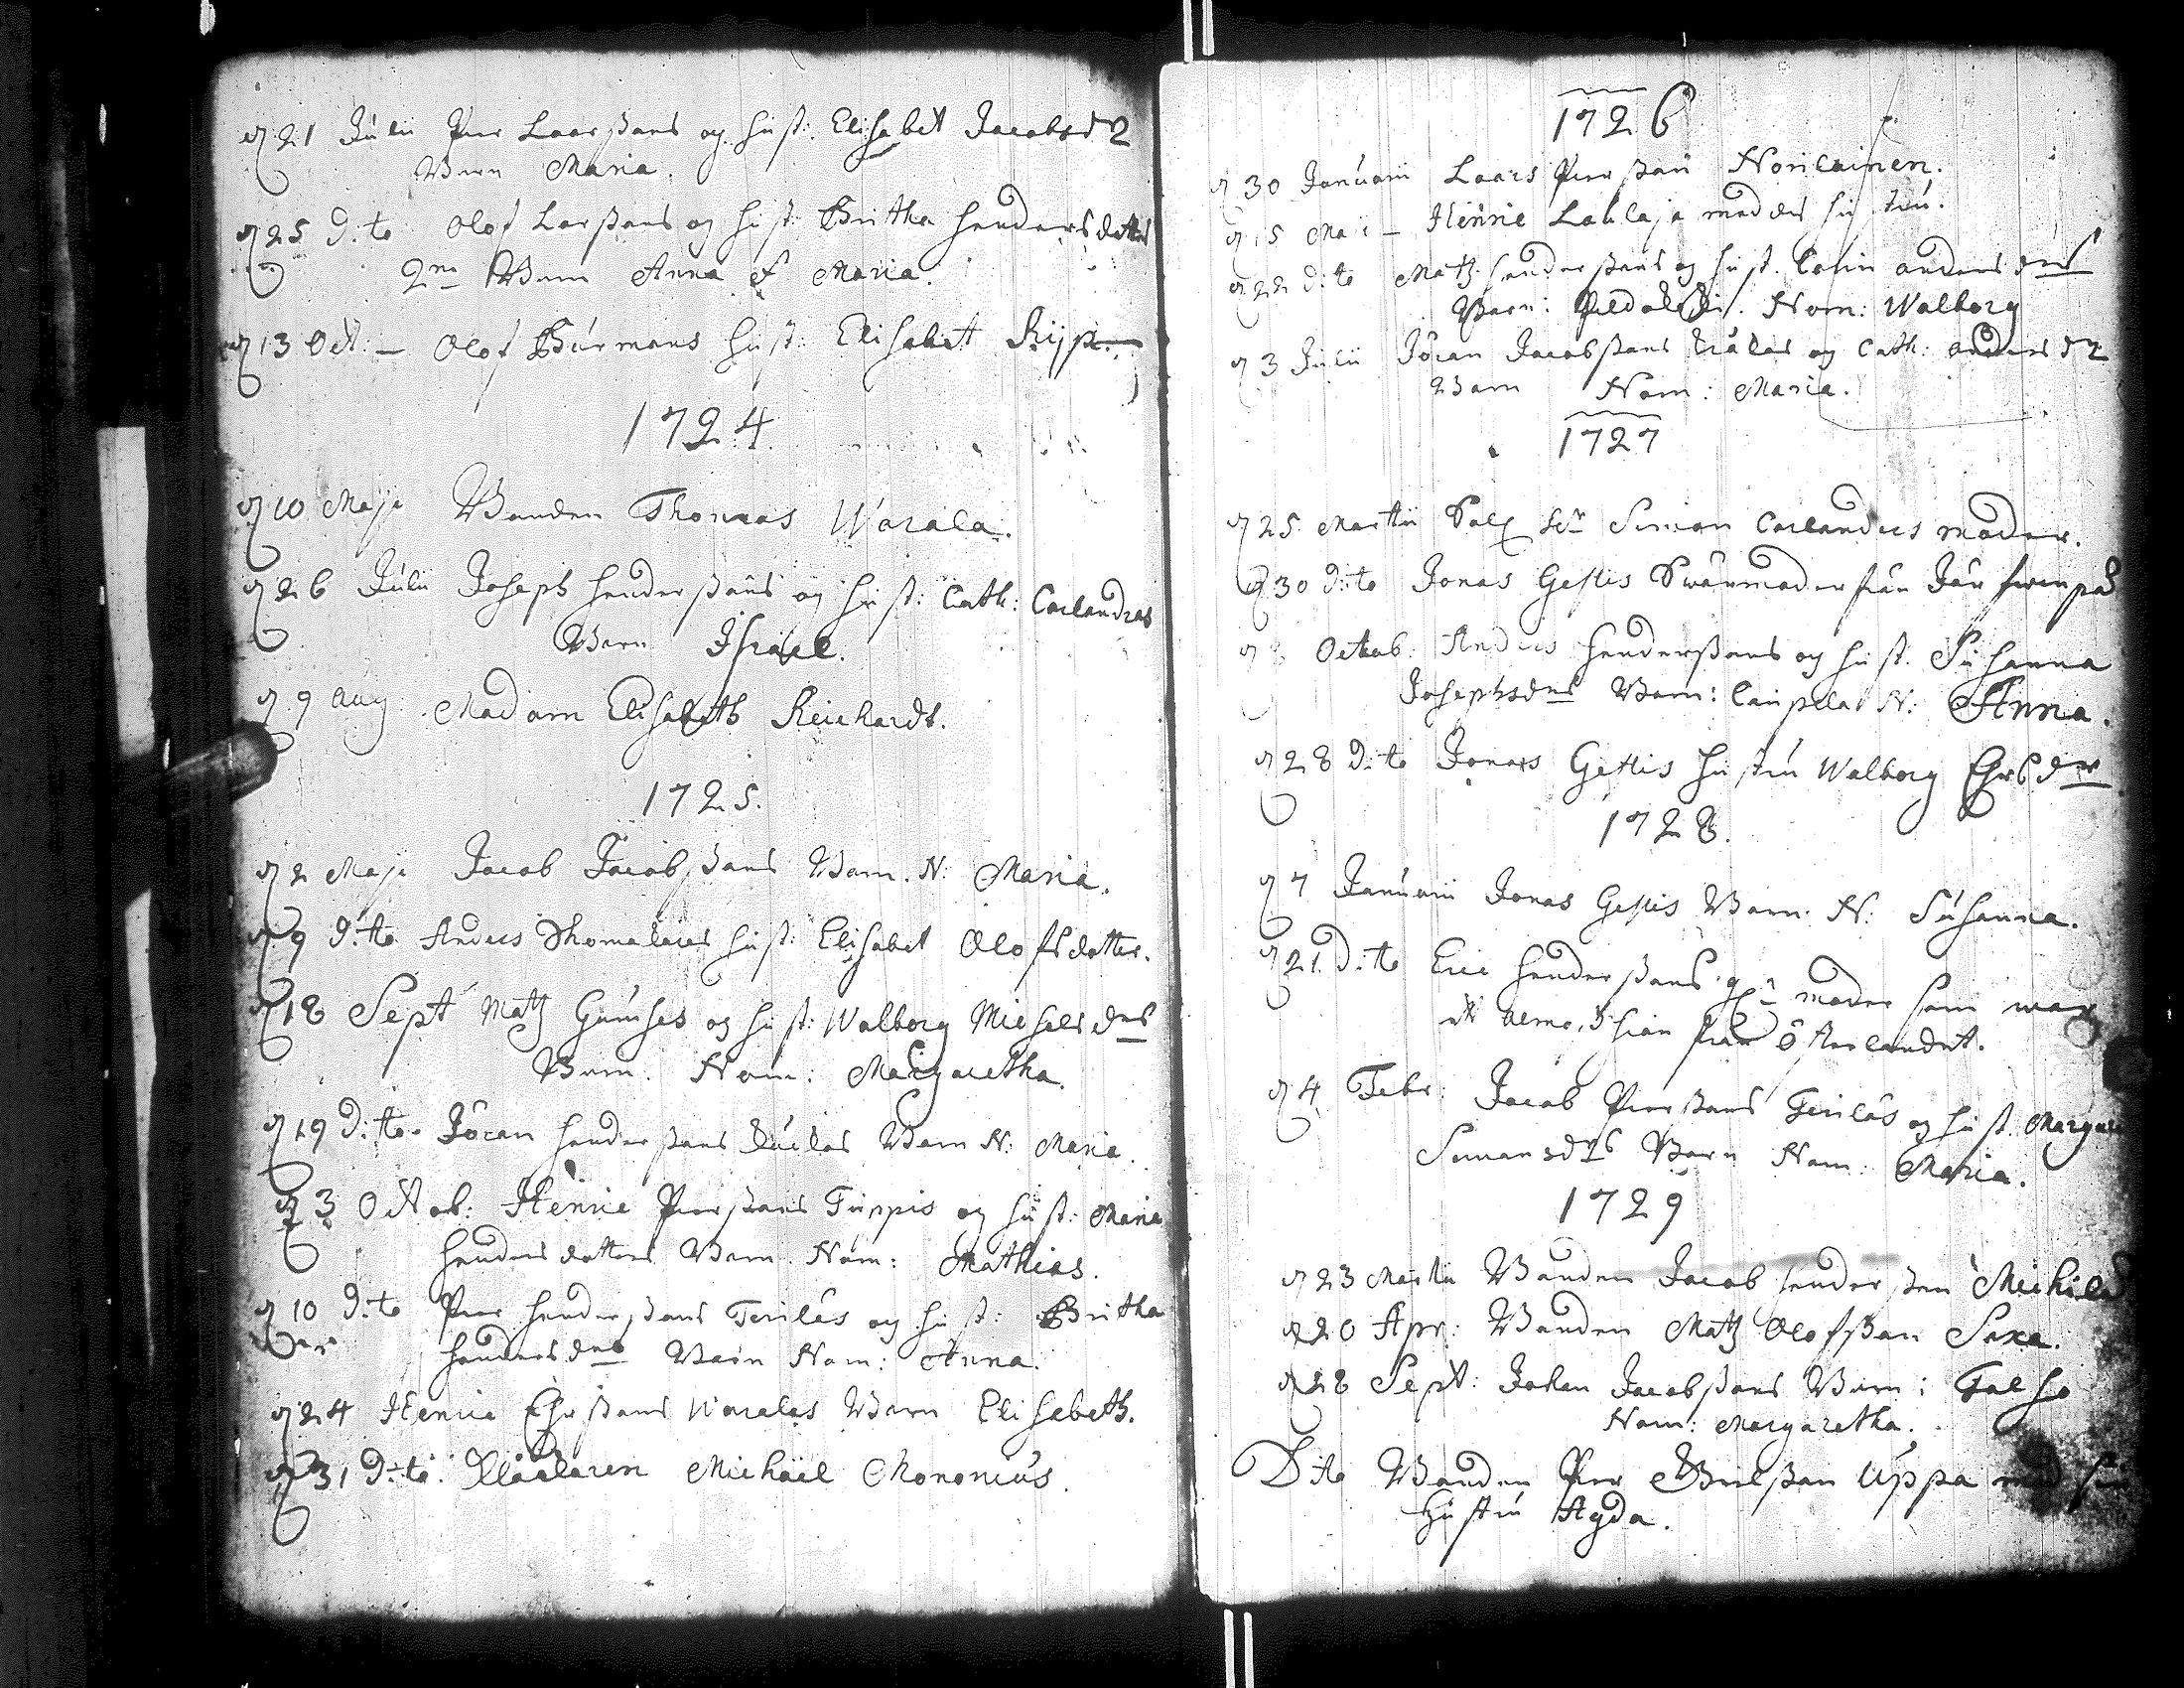 d 21 Julii Pier Laarssons og hust: Elisabet Jacobsd2
Barn Maria.
d 25 d:to Olof Larssons og hust: Britha hendersdotters
2ne Barn Anna & Maria.
d 13 Oct: – Olof Burmans hust: Elisabet Rijp
1724
d 10 Maji Bonden Thomas Warala.
d 26 Julii Joseph henderssons og hust: Cath: Carlandras
Barn Israel.
d 9 aug: Madam Elisabeth Reichardt.
1725.
d 2 Maji Jacob Jacobssons Barn. N: Maria.
d 9 d:to Anders Thomalaies hust: Elisabet Olofsdotter.
d 18 Sept Matz Gumses og hust: Walborg Michelsdrs
Barn. Nom: Margaretha.
d 19 d:to. Jöran henderssons Barn N: Maria.
d 3 Octob: Henric Pierssons Tuppis og hust: Maria
hendersdotters Barn. Nom: Mathias.
d 10 d:to Pier henderssons Teriläs og hust: Britha
hendersdrs Barn Nom: Anna.
d 24 Henric Ehrssons Waralas Barn Elisabeth.
d 31 d:to. Klåckaren Michäel Mononius.
1726
d 30 Januarii Laars Piersson Noricainen.
d 15 Maji – Henric Lahlaja med des hustru.
d 22 d:to Matz henderssons og hust. Carin andersdrs
Barn: Nom: Walborg
d 3 Julii Jöran Jacobssons og Cath: andersd2
Barn Nom: Maria.
1727
d 25 Martii Sal Hr Simon Carlanders moder.
d 30 d:to Jonas Gestis Swärmoder från
d 3 Octob. Anders henderssons og hust. Susanna
Josephsdrs Barn: Caupila N: Anna.
d 28 d:to Jonas Gestis hustru Walborg Ehrsdr
1728.
d 7 Januarii Jonas Gestis Barn. N: Susanna.
d 21. d:to Eric henderssons moder som war
från österlandet.
d 4 Febr: Jacob Pierssons Teriläs og hust. Margare
Simonsdrs Barn Nom: Maria.
1729
d 23 Martii Bonden Jacob hendersson Michilä
d 20 Apr: Bonden Matz Olofsson Saxa.
d 28 Sept: Johan Jacobssons Barn: Talso
Nom: Margaretha.
Dito Bonden Pier Uppa med sin
Hustru Agda.